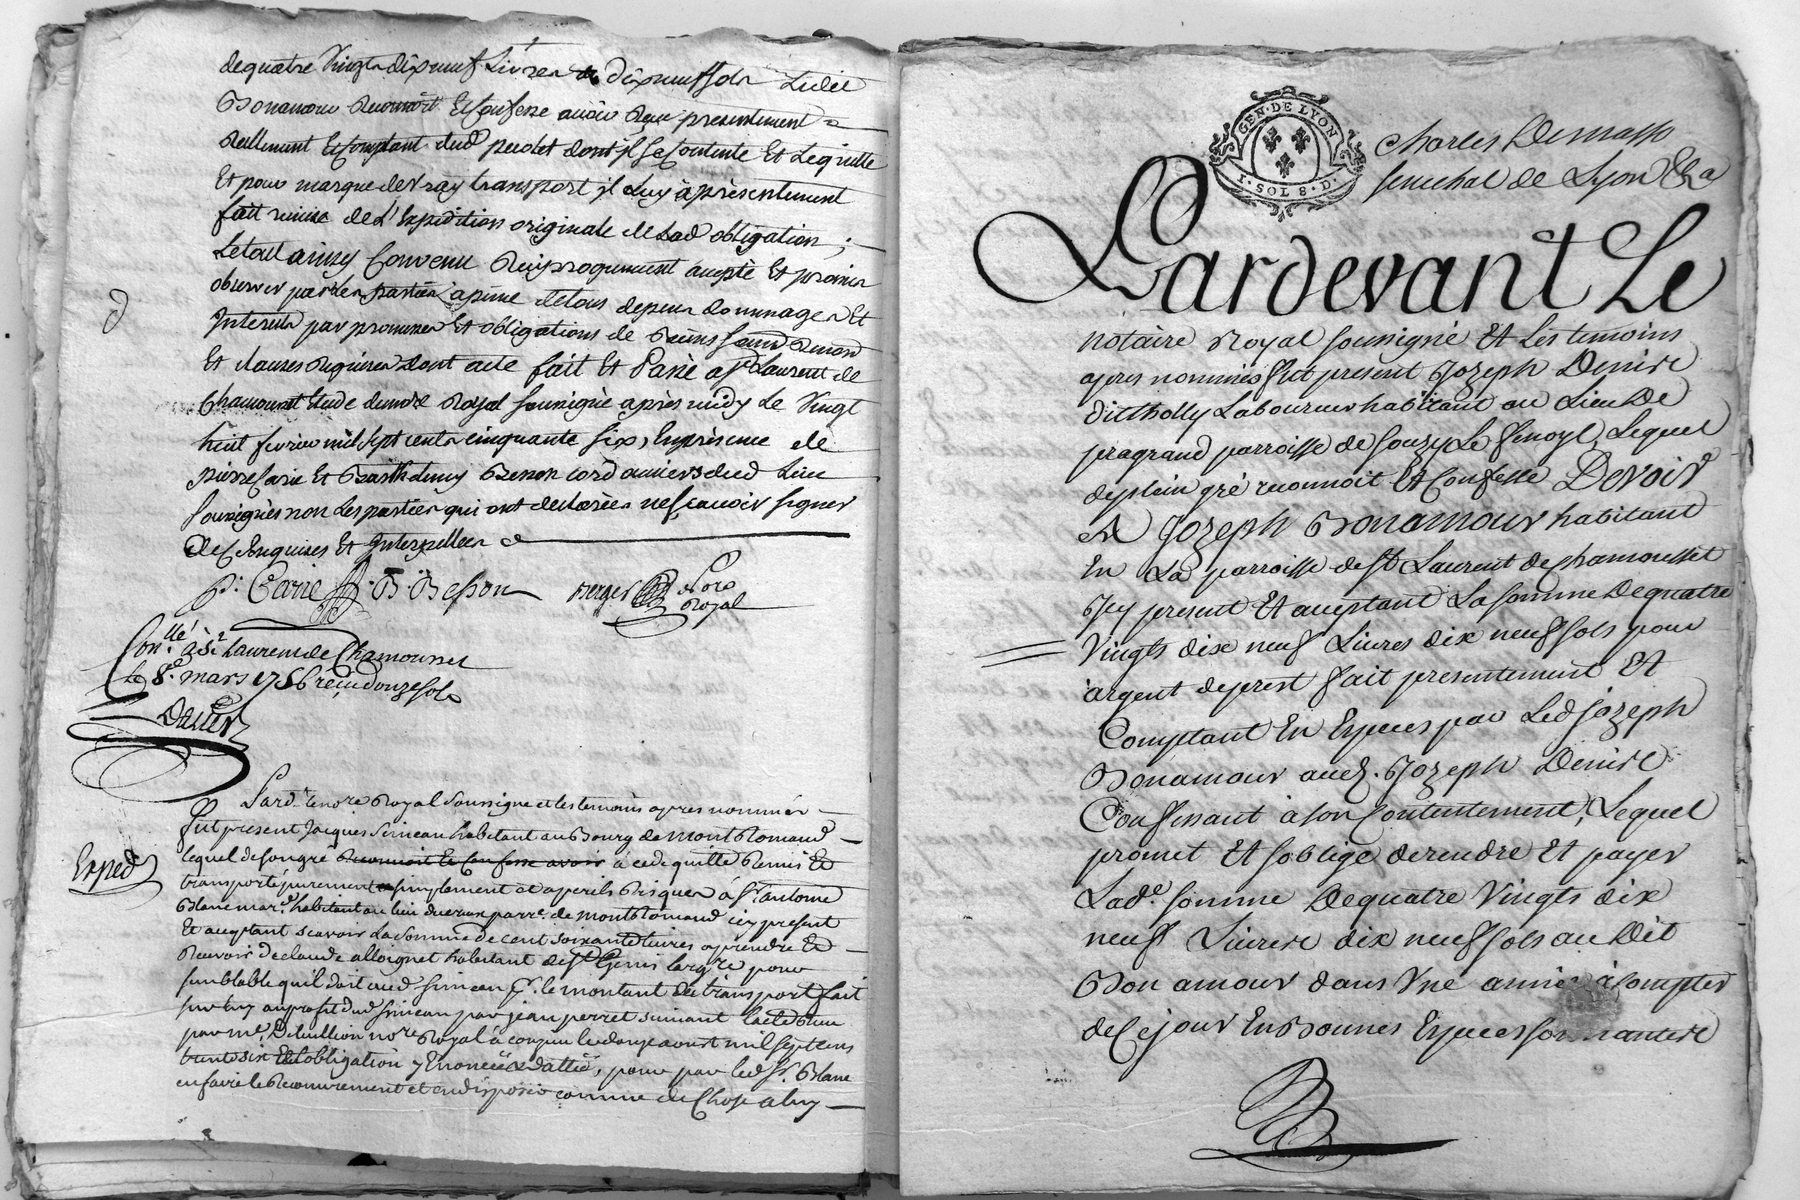 de quatre Vingts dix neuf Livres dix neuf sols Ledit
Bonamour Reconnoit Et Confesse avoir Reçu presentement
Reellement Et Comptant dud perolet dont il se Contente Et Lequitte
Et pour marque de Vray transport jl Luy à présentement
fait remise de L'Expédition originale de Lad obligation ;
Le tout ainsy Convenu Reciproquement accepté Et promis
observer par Les partiés a peine de tous depens dommages Et
Interets par promesses Et obligations de biens
Et clauses Requises dont acte fait Et Passé a St Laurent de
Chamousset Etude du not Royal soussigné après midy Le Vingt
huit fevrier mil sept cents cinquante six, En présence de
pierre Carie Et Barthelemy Besson cordonniers dud Lieu
soussignés non Les partiés qui ont declarées ne sçavoir signer
de Ce Enquises Et Interpellées
P. Carie B. Besson Berger Nore
Royal
Conllé à St Laurent de Chamousset
Le 8e mars 1756 reçu douze sols
Pard. le nore Royal Soussigne et les temoins apres nommés
fut present Jacques Simean habitant au Bourg de Montromand
lequel de son gré Reconnoit Et Confesse avoir à cedé quitté Remis Et
transporté purement simplement et a perils Risques à Sr antoine
Blanc mard. habitant au lieu parre. de Montromand icy present
Et acceptant scavoir La somme de cent soixante livres a prendre Et
Recevoir de claude habitant de St Genis largre pour
semblable qu'il doit aud Simean pr. le montant du transport fait
sur luy au profit dud Simean par jean perret suivant l'acte Reçu
par Me. nore Royal à le douze aoust mil sept cens
trente six Et l'obligation y Enoncéé & dattéé, pour par led Sr. Blanc
en faire le Recouvrement et en disposer comme de Chose a luy
Exped
GEN. DE LYON
1. SOL 8. D.
Charles Demasso
senechal de Lyon &a
Pardevant Le
notaire Royal soussigné Et Les temoins
apres nommés fut present Jozeph Denise
dit Laboureur habitant au Lieu De
pragrand parroisse de Souzy Le
de plein gré reconnoit Et Confesse Devoir
A Jozeph Bonamour habitant
En La parroisse de St Laurent de Chamousset
Icy present Et acceptant La somme De quatre
Vingts dix neuf Livres dix neuf sols pour
argent de prest fait presentement Et
Comptant En Especes par Led Jozeph
Bonamour aud. Jozeph Denise
Confessant à son Contentement, Lequel
promet Et s'oblige de rendre Et payer
Lade. somme De quatre Vingts dix
neuf Livres dix neuf sols au Dit
Bon amour dans Une année à Compter
de Ce jour En Bonnes Especes sonnantes